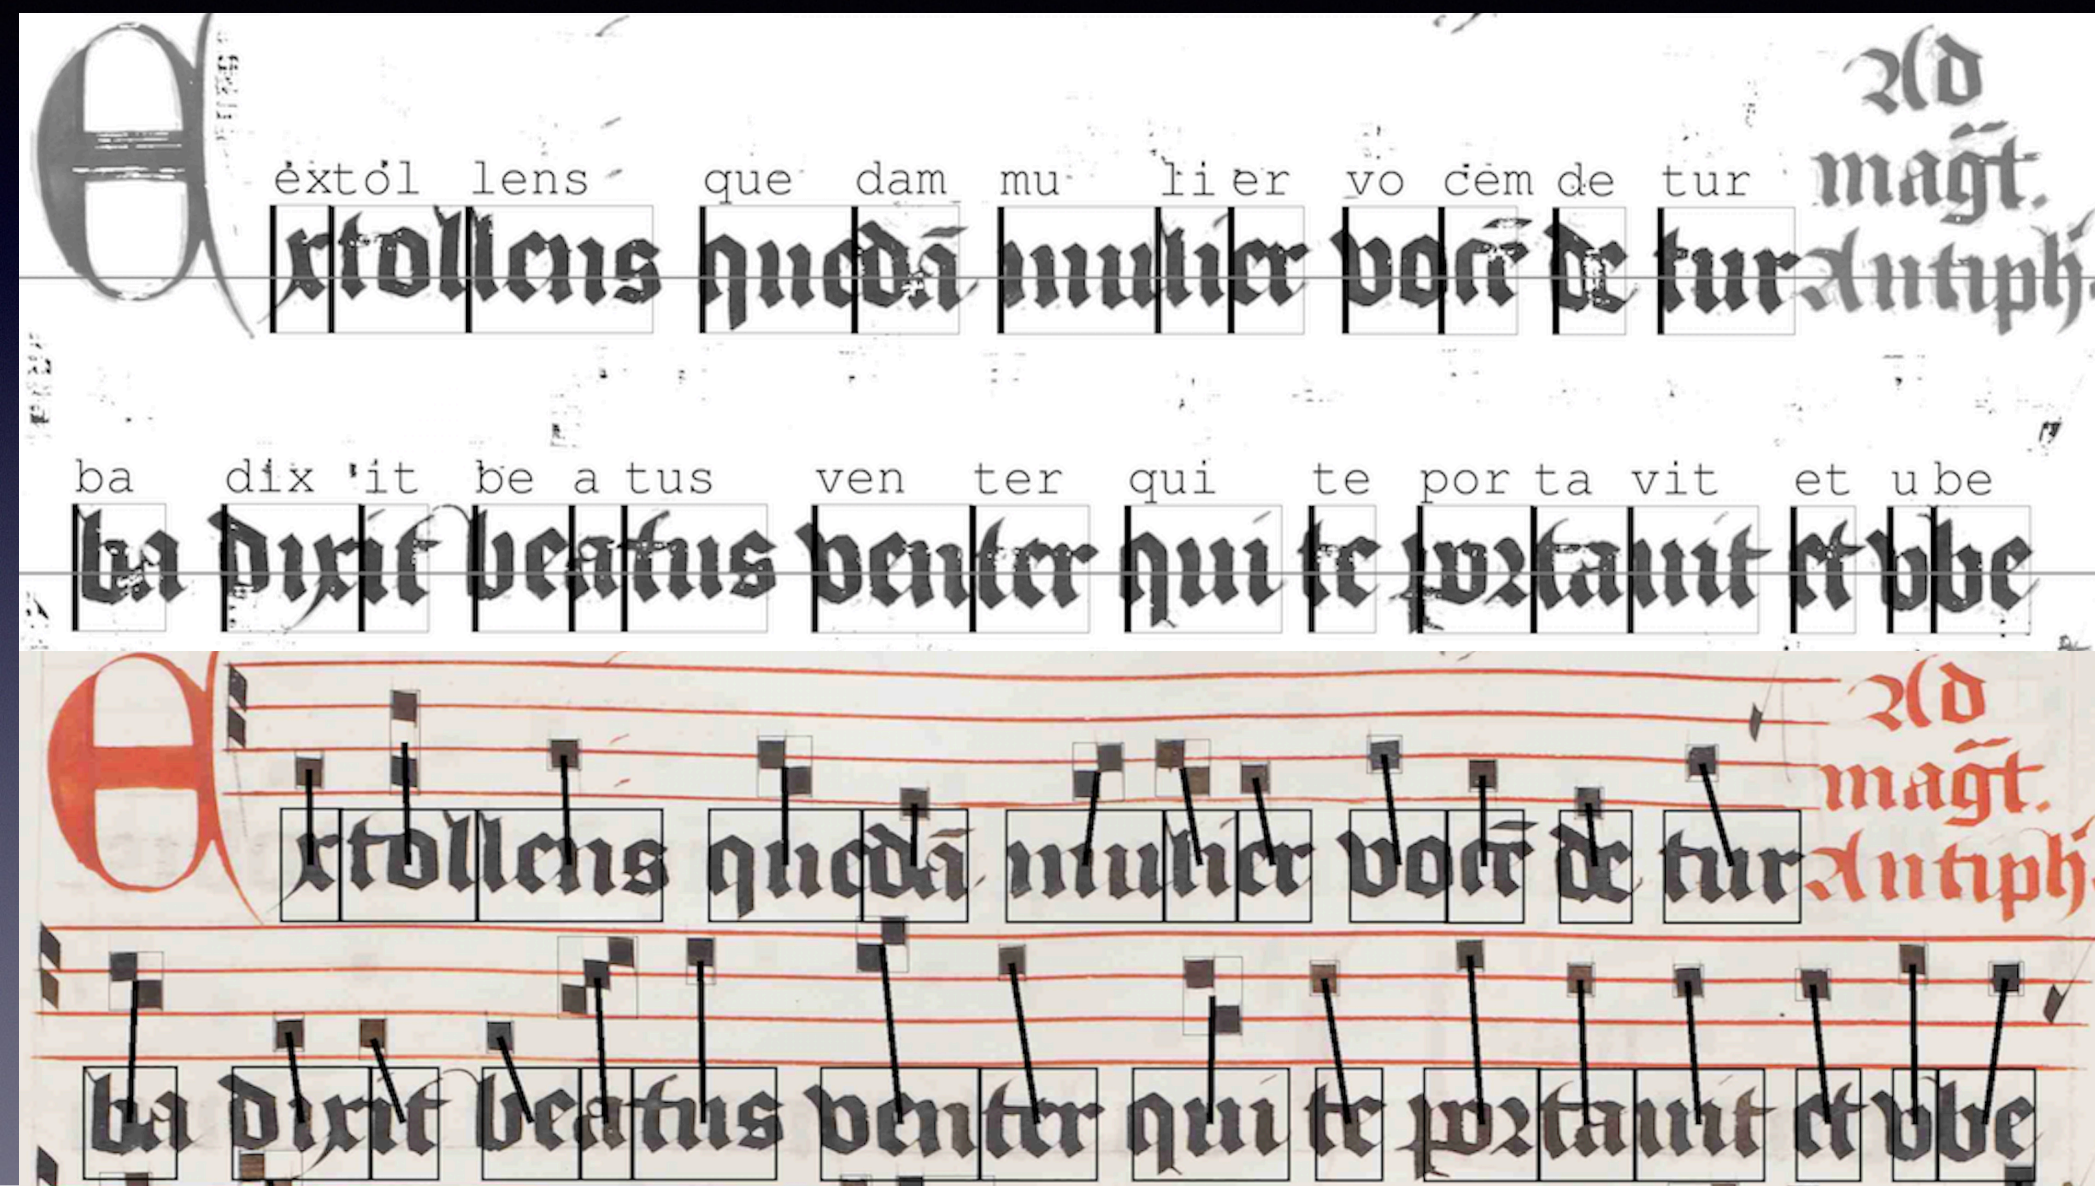 Ad
extol lens que dam mu li er vo cem de tur
magt̄.
Extollens quedā mulier vocē de tur Antiph
ba dix it be a tus ven ter qui te por ta vit et u be
ba dixit beatus venter qui te portauit et vbe
Ad
magt̄.
Extollens quedā mulier vocē de tur Antiph
ba dixit beatus venter qui te portauit et vbe